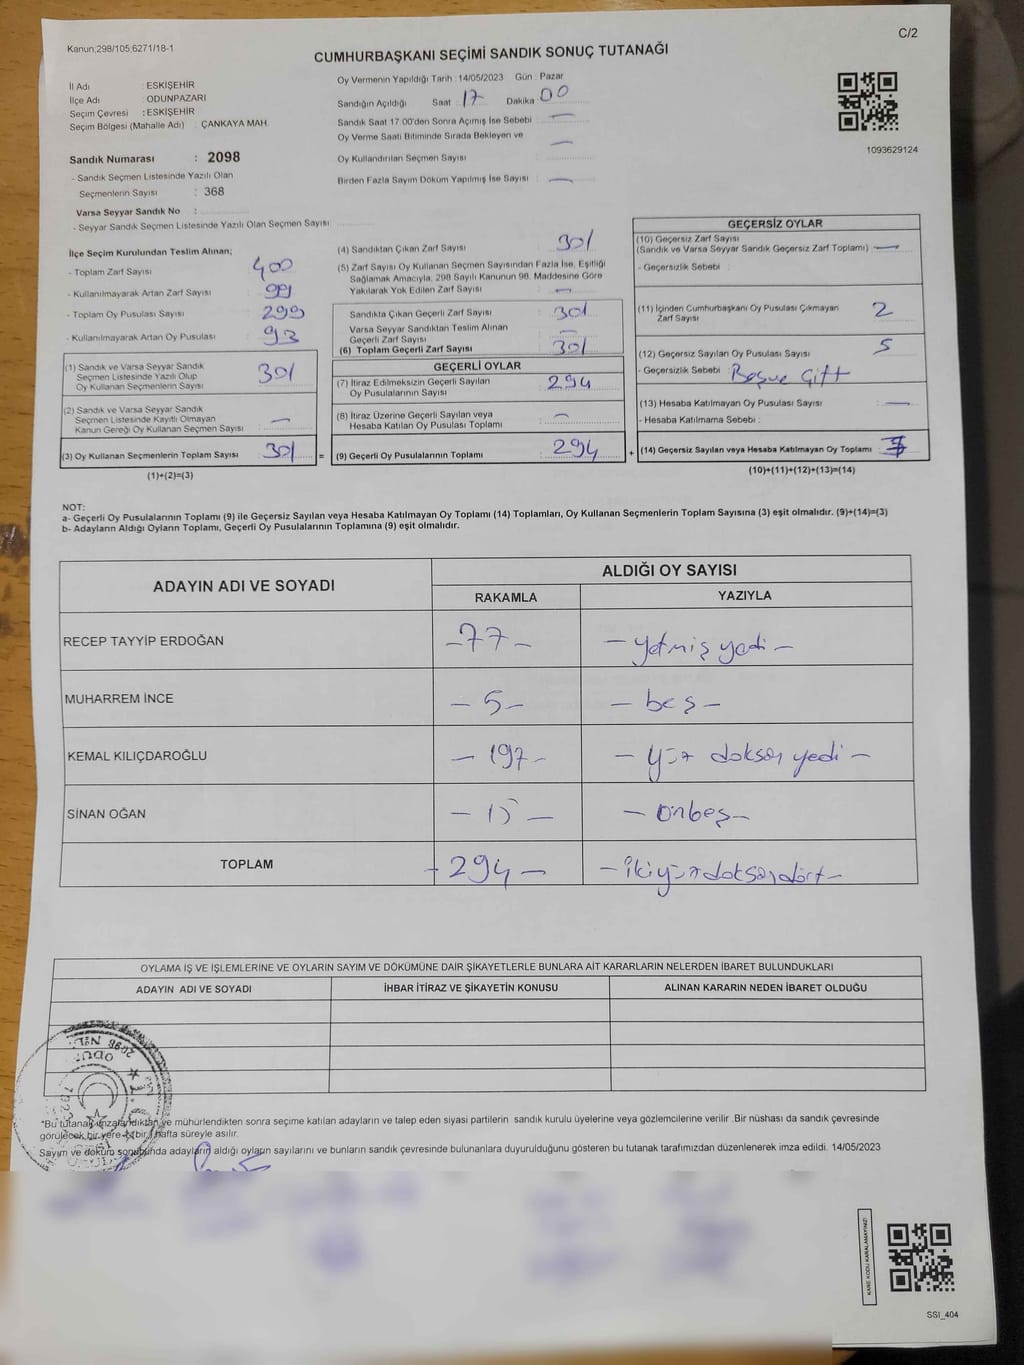 Kanun;298/105;6271/18-1
C/2
CUMHURBAŞKANI SEÇİMİ SANDIK SONUÇ TUTANAĞI
İl Adı : ESKİŞEHİR
İlçe Adı : ODUNPAZARI
Seçim Çevresi : ESKİŞEHİR
Seçim Bölgesi (Mahalle Adı) : ÇANKAYA MAH.
Sandık Numarası : 2098
- Sandık Seçmen Listesinde Yazılı Olan
Seçmenlerin Sayısı : 368
Varsa Seyyar Sandık No :
- Seyyar Sandık Seçmen Listesinde Yazılı Olan Seçmen Sayısı:
Oy Vermenin Yapıldığı Tarih :14/05/2023 Gün : Pazar
Sandığın Açıldığı Saat : 17 Dakika 00
Sandık Saat 17.00'den Sonra Açımış İse Sebebi —
Oy Verme Saati Bitiminde Sırada Bekleyen ve
Oy Kullandırılan Seçmen Sayısı —
Birden Fazla Sayım Döküm Yapılmış İse Sayısı —
1093629124
İlçe Seçim Kurulundan Teslim Alınan;
- Toplam Zarf Sayısı 400
- Kullanılmayarak Artan Zarf Sayısı 99
- Toplam Oy Pusulası Sayısı 299
- Kullanılmayarak Artan Oy Pusulası 93
(1) Sandık ve Varsa Seyyar Sandık
Seçmen Listesinde Yazılı Olup
Oy Kullanan Seçmenlerin Sayısı 301
(2) Sandık ve Varsa Seyyar Sandık
Seçmen Listesinde Kayıtlı Olmayan
Kanun Gereği Oy Kullanan Seçmen Sayısı —
(3) Oy Kullanan Seçmenlerin Toplam Sayısı 301 =
(1)+(2)=(3)
(4) Sandıktan Çıkan Zarf Sayısı 301
(5) Zarf Sayısı Oy Kullanan Seçmen Sayısından Fazla İse, Eşitliği
Sağlamak Amacıyla, 298 Sayılı Kanunun 98. Maddesine Göre
Yakılarak Yok Edilen Zarf Sayısı —
Sandıkta Çıkan Geçerli Zarf Sayısı 301
Varsa Seyyar Sandıktan Teslim Alınan
Geçerli Zarf Sayısı —
(6) Toplam Geçerli Zarf Sayısı 301
GEÇERLİ OYLAR
(7) İtiraz Edilmeksizin Geçerli Sayılan
Oy Pusulalarının Sayısı 294
(8) İtiraz Üzerine Geçerli Sayılan veya
Hesaba Katılan Oy Pusulası Toplamı —
(9) Geçerli Oy Pusulalarının Toplamı 294 +
GEÇERSİZ OYLAR
(10) Geçersiz Zarf Sayısı
(Sandık ve Varsa Seyyar Sandık Geçersiz Zarf Toplamı) —
- Geçersizlik Sebebi :
(11) İçinden Cumhurbaşkanı Oy Pusulası Çıkmayan
Zarf Sayısı 2
(12) Geçersiz Sayılan Oy Pusulası Sayısı 5
- Geçersizlik Sebebi
(13) Hesaba Katılmayan Oy Pusulası Sayısı —
- Hesaba Katılmama Sebebi :
(14) Geçersiz Sayılan veya Hesaba Katılmayan Oy Toplamı
(10)+(11)+(12)+(13)=(14)
NOT:
a- Geçerli Oy Pusulalarının Toplamı (9) ile Geçersiz Sayılan veya Hesaba Katılmayan Oy Toplamı (14) Toplamları, Oy Kullanan Seçmenlerin Toplam Sayısına (3) eşit olmalıdır. (9)+(14)=(3)
b- Adayların Aldığı Oyların Toplamı, Geçerli Oy Pusulalarının Toplamına (9) eşit olmalıdır.
ADAYIN ADI VE SOYADI
ALDIĞI OY SAYISI
RAKAMLA YAZIYLA
RECEP TAYYİP ERDOĞAN -77- - yetmiş yedi -
MUHARREM İNCE - 5 - - beş -
KEMAL KILIÇDAROĞLU - 197 - - yüz doksan yedi -
SİNAN OĞAN - 15 - - onbeş -
TOPLAM - 294 - - ikiyüzdoksandört -
OYLAMA İŞ VE İŞLEMLERİNE VE OYLARIN SAYIM VE DÖKÜMÜNE DAİR ŞİKAYETLERLE BUNLARA AİT KARARLARIN NELERDEN İBARET BULUNDUKLARI
ADAYIN ADI VE SOYADI İHBAR İTİRAZ VE ŞİKAYETİN KONUSU ALINAN KARARIN NEDEN İBARET OLDUĞU
*Bu tutanak imzalandıktan ve mühürlendikten sonra seçime katılan adayların ve talep eden siyasi partilerin sandık kurulu üyelerine veya gözlemcilerine verilir .Bir nüshası da sandık çevresinde
görülecek bir yere (bir) hafta süreyle asılır.
Sayım ve döküm sonunda adayların aldığı oyların sayılarını ve bunların sandık çevresinde bulunanlara duyurulduğunu gösteren bu tutanak tarafımızdan düzenlenerek imza edildi. 14/05/2023
KARE KODU KARALAMAYINIZ!
SSI_404